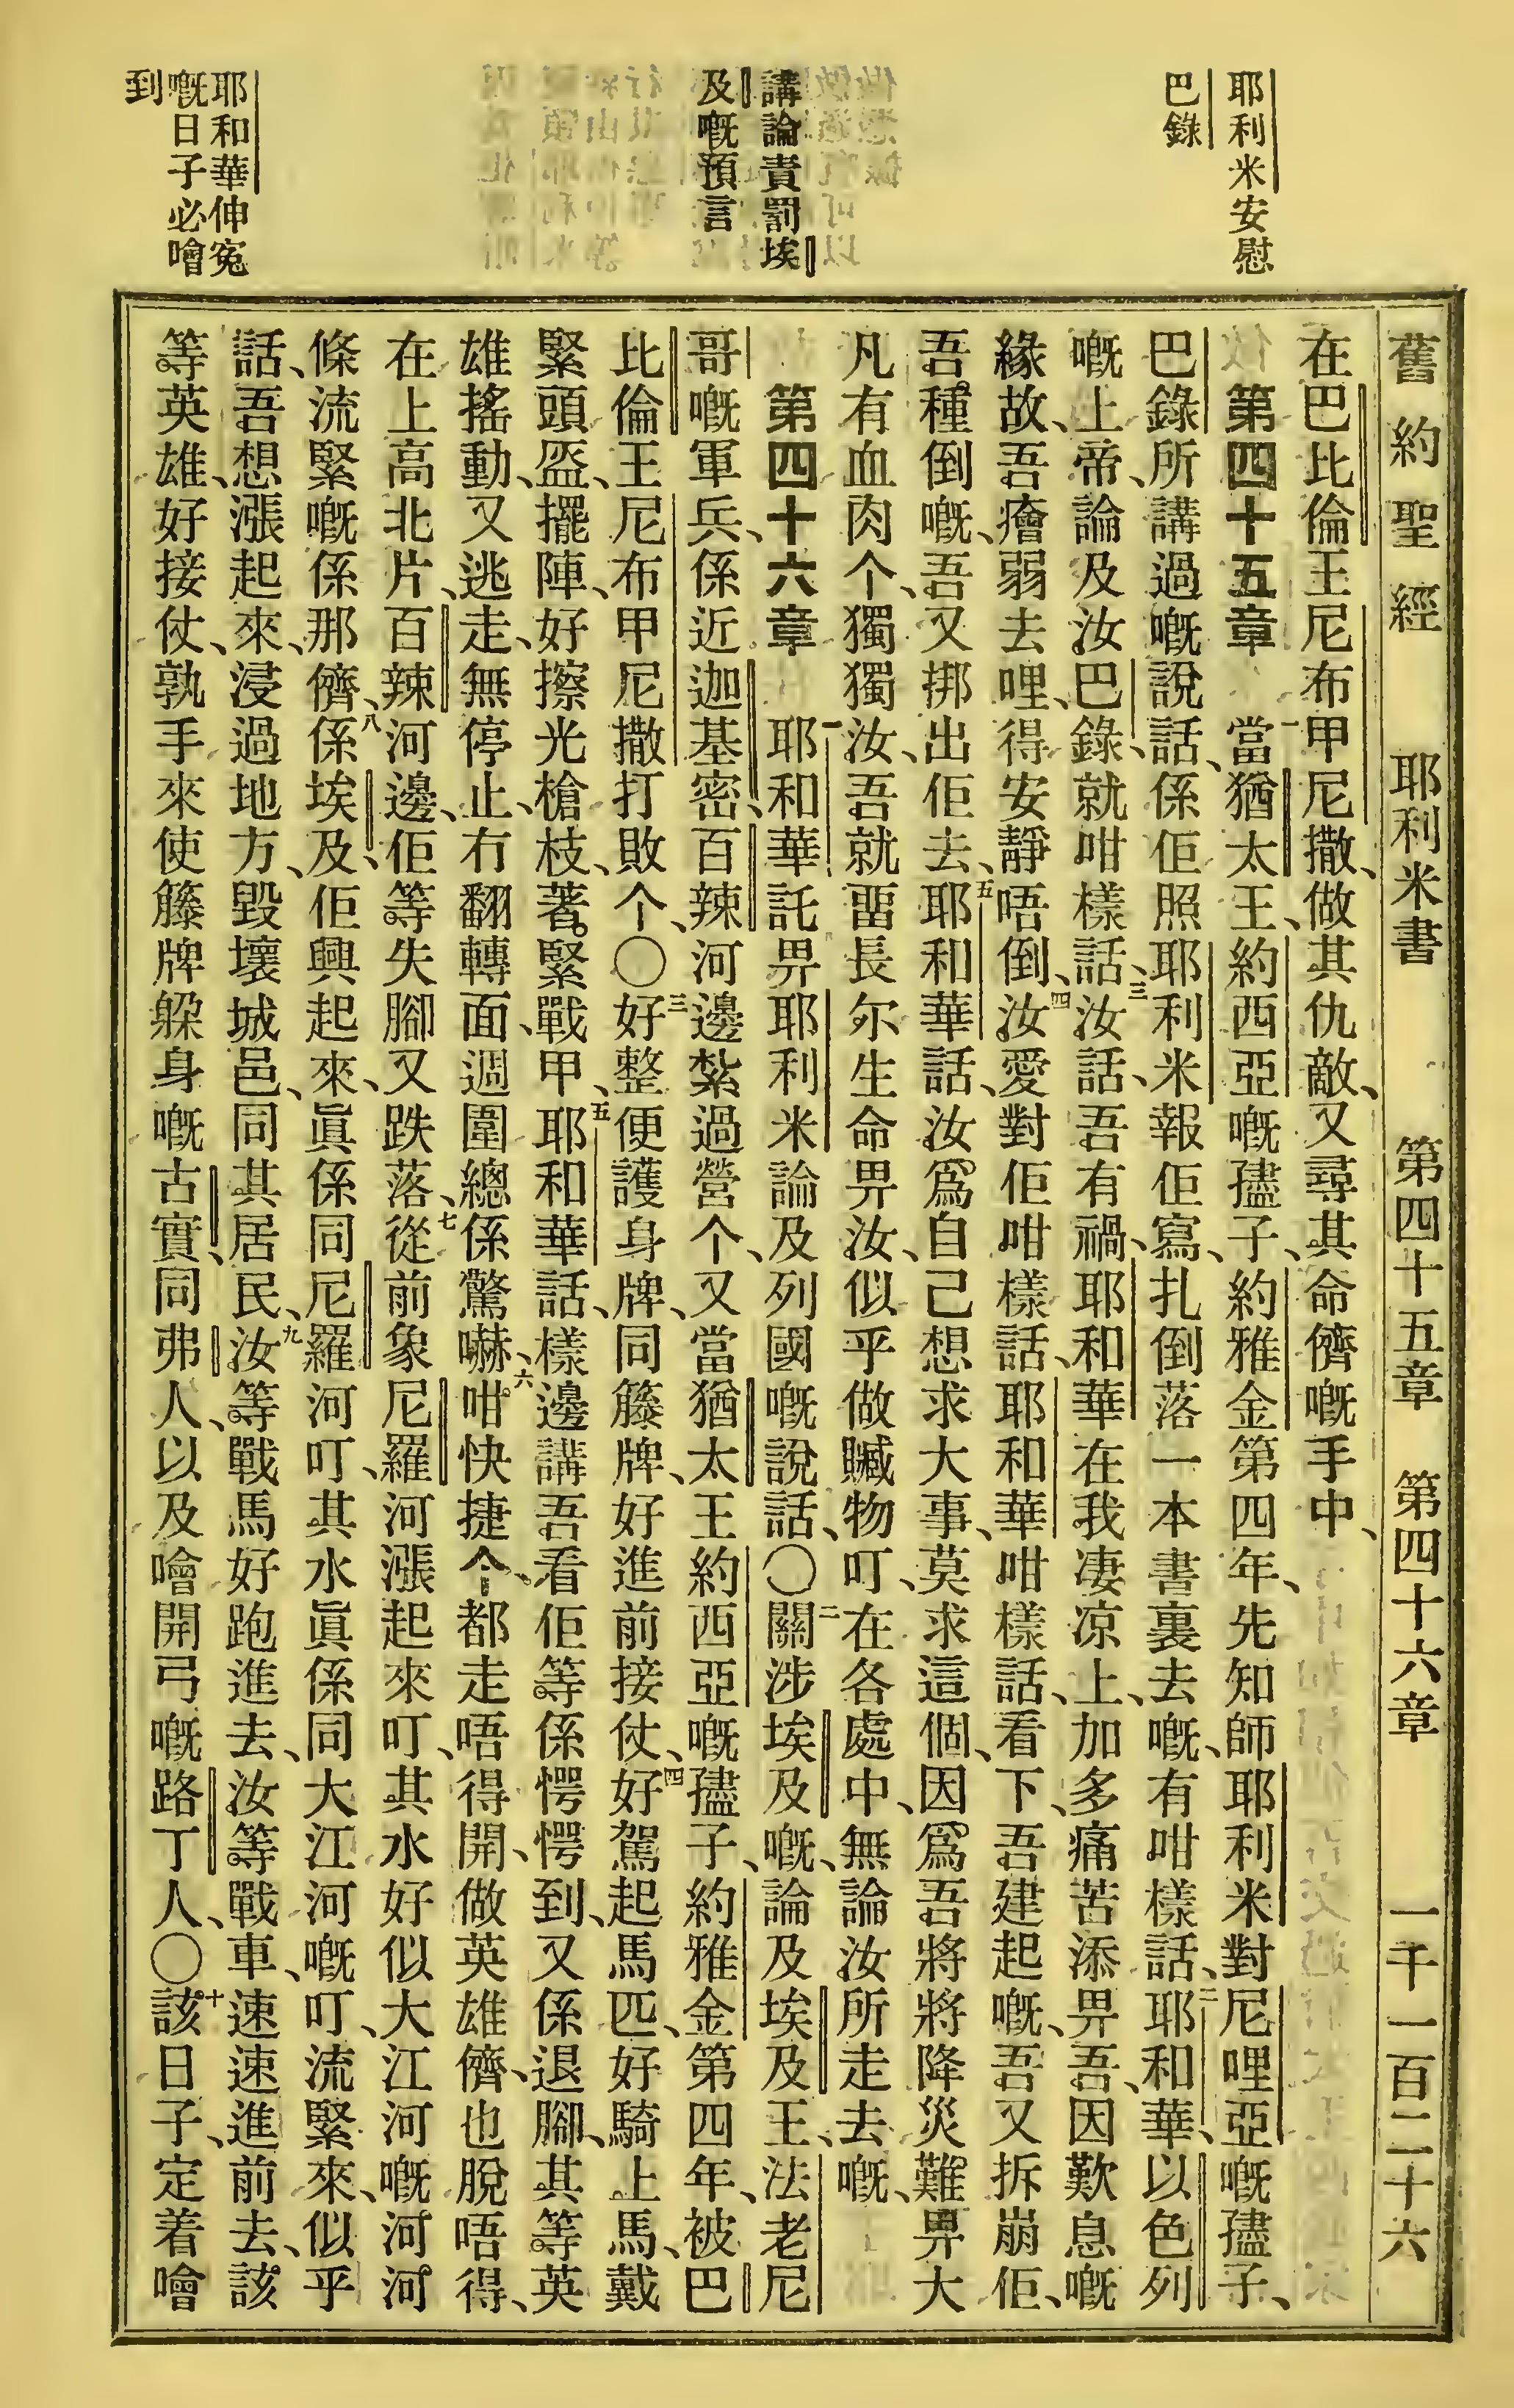 舊約聖經 耶利米書 第四十五章 第四十六章 一千一百二十六
耶利米安慰
巴錄
講論責罰埃
及嘅預言
耶和華伸寃
嘅日子必噲
到
在巴比倫王尼布甲尼撒、做其仇敵、又尋其命儕嘅手中、
第四十五章 一當猶太王、約西亞嘅孻子、約雅金第四年、先知師耶利米對尼哩亞嘅孻子、
巴錄所講過嘅說話、係佢照耶利米報佢寫、扎倒落一本書裏去嘅、有咁樣話、二耶和華、以色列
嘅上帝、論及汝巴錄、就咁樣話、三汝話、吾有禍、耶和華在我凄凉上、加多痛苦添畀吾、因歎息嘅
緣故、吾癐弱去哩、得安靜唔倒、四汝愛對佢咁樣話、耶和華咁樣話、看下、吾建起嘅、吾又拆崩佢、
吾種倒嘅、吾又挷出佢去、五耶和華話、汝爲自己想求大事、莫求這個、因爲吾將將降災難畀大
凡有血肉个、獨獨汝、吾就畱長尔生命畀汝、似乎做贓物叮、在各處中、無論汝所走去嘅、
第四十六章 一耶和華託畀耶利米論及列國嘅說話、〇二關涉埃及嘅、論及埃及王、法老尼
哥嘅軍兵、係近迦基密、百辣河邊紮過營个、又當猶太王約西亞嘅孻子、約雅金第四年、被巴
比倫王尼布甲尼撒打敗个、〇三好整便護身牌、同籐牌、好進前接仗、四好駕起馬匹、好騎上馬、戴
緊頭盔、擺陣、好擦光槍枝、著緊戰甲、五耶和華話、樣邊講吾看佢等係愕愕到、又係退腳、其等英
雄搖動、又逃走、無停止、冇翻轉面、週圍總係驚嚇、六咁快捷个、都走唔得開、做英雄儕、也脫唔得、
在上高北片、百辣河邊、佢等失腳又跌落、七從前象尼羅河漲起來叮、其水好似大江河嘅河河
條流緊嘅係那儕、八係埃及、佢興起來、眞係同尼羅河叮、其水眞係同大江河嘅叮、流緊來、似乎
話、吾想漲起來、浸過地方、毀壞城邑、同其居民、九汝等戰馬好跑進去、汝等戰車、速速進前去、該
等英雄、好接仗、孰手來使籐牌躲身嘅古實、同弗人、以及噲開弓嘅路丁人、〇十該日子、定着噲